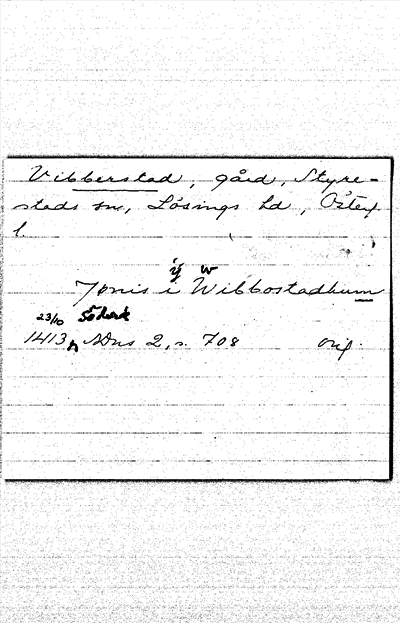 Vibberstad, gård, Styre-
stads sn, Lösings hd, Österg
l.
ij w
Jönis i Wibbostadhum
23/10 Söderk
1413 SDns 2, s. 708 orig.